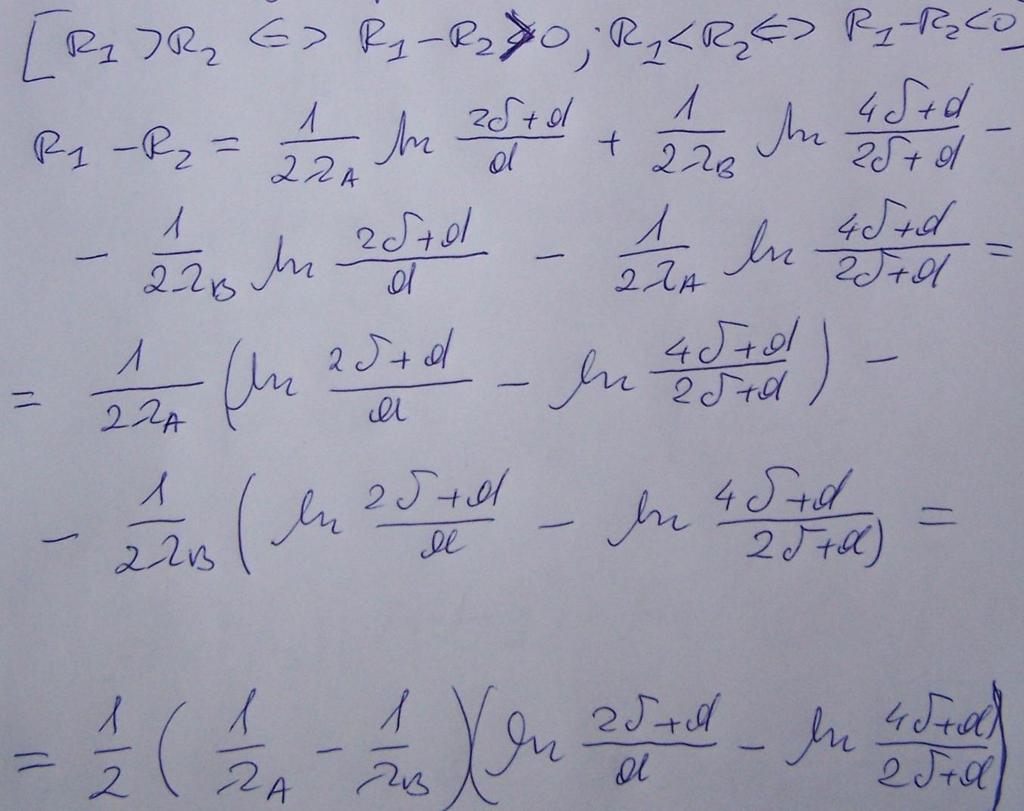 [R₁ > R₂ <=> R₁ - R₂ > 0; R₁ < R₂ <=> R₁ - R₂ < 0
R₁ - R₂ = 1/(2λ_A) ln (2δ+d)/d + 1/(2λ_B) ln (4δ+d)/(2δ+d) -
- 1/(2λ_B) ln (2δ+d)/d - 1/(2λ_A) ln (4δ+d)/(2δ+d) =
= 1/(2λ_A) (ln (2δ+d)/d - ln (4δ+d)/(2δ+d)) -
- 1/(2λ_B) (ln (2δ+d)/d - ln (4δ+d)/(2δ+d)) =
= 1/2 (1/λ_A - 1/λ_B)(ln (2δ+d)/d - ln (4δ+d)/(2δ+d))